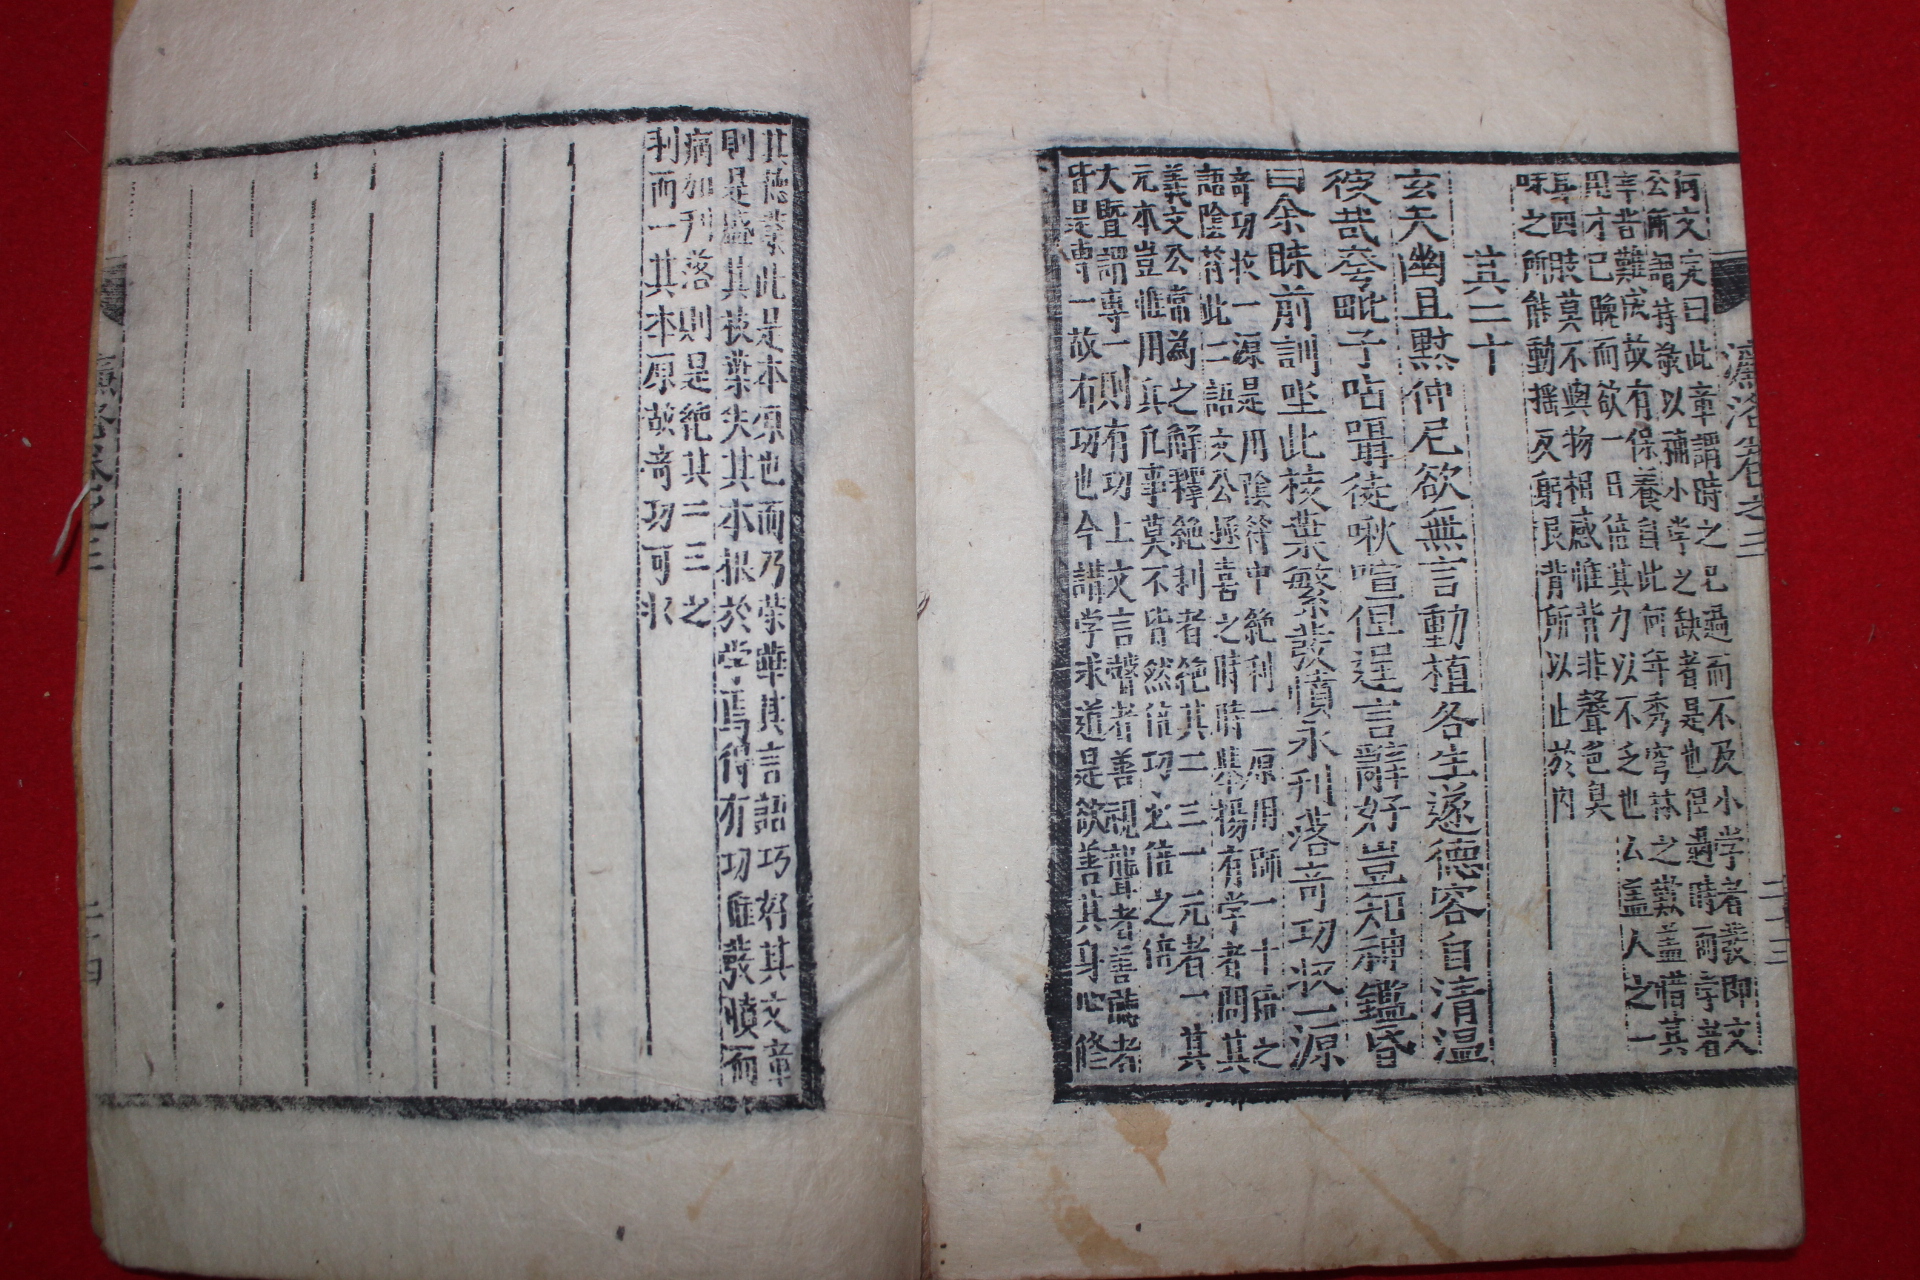 濂洛卷之三
二十三
何文定曰此章謂時之已過而不及小学者發即文
公所謂持敬以補小学之缺者是也但過時而学者
辛苦難成故有保養自此何年秀穹林之歎盖惜其
用才已晩而欲一日倍其力以不乏也么盖人之一
身四肢莫不與物相感惟背非聲色臭
味之所能動揺反躬艮背所以止於内
其二十
玄天幽且黙仲尼欲無言動植各生遂德容自清温
彼哉夸毗子呫囁徒啾喧但逞言辭好豈知神鑑昏
曰余昧前訓坐此枝葉繁發憤永刋落奇功収一源
奇功收一源是用陰符中絶利一原用師一十倍之
語陰符此二語文公極喜之時時舉揚有学者問其
義文公常為之解釋絶利者絶其二三一元者一其
元本豈惟用兵凡事莫不皆然倍功必倍之倍
大暨謂專一則有功上文言聲者善視聾者善聽者
皆是專一故有功也今講学求道是欲善其身心修
其德業此是本原也而乃荣華其言語巧好其文章
則是盛其枝葉失其本根於学焉得有功唯發憤而
痛加刋落則是絶其二三之
利而一其本原故奇功可収
濂洛卷之三
二十四